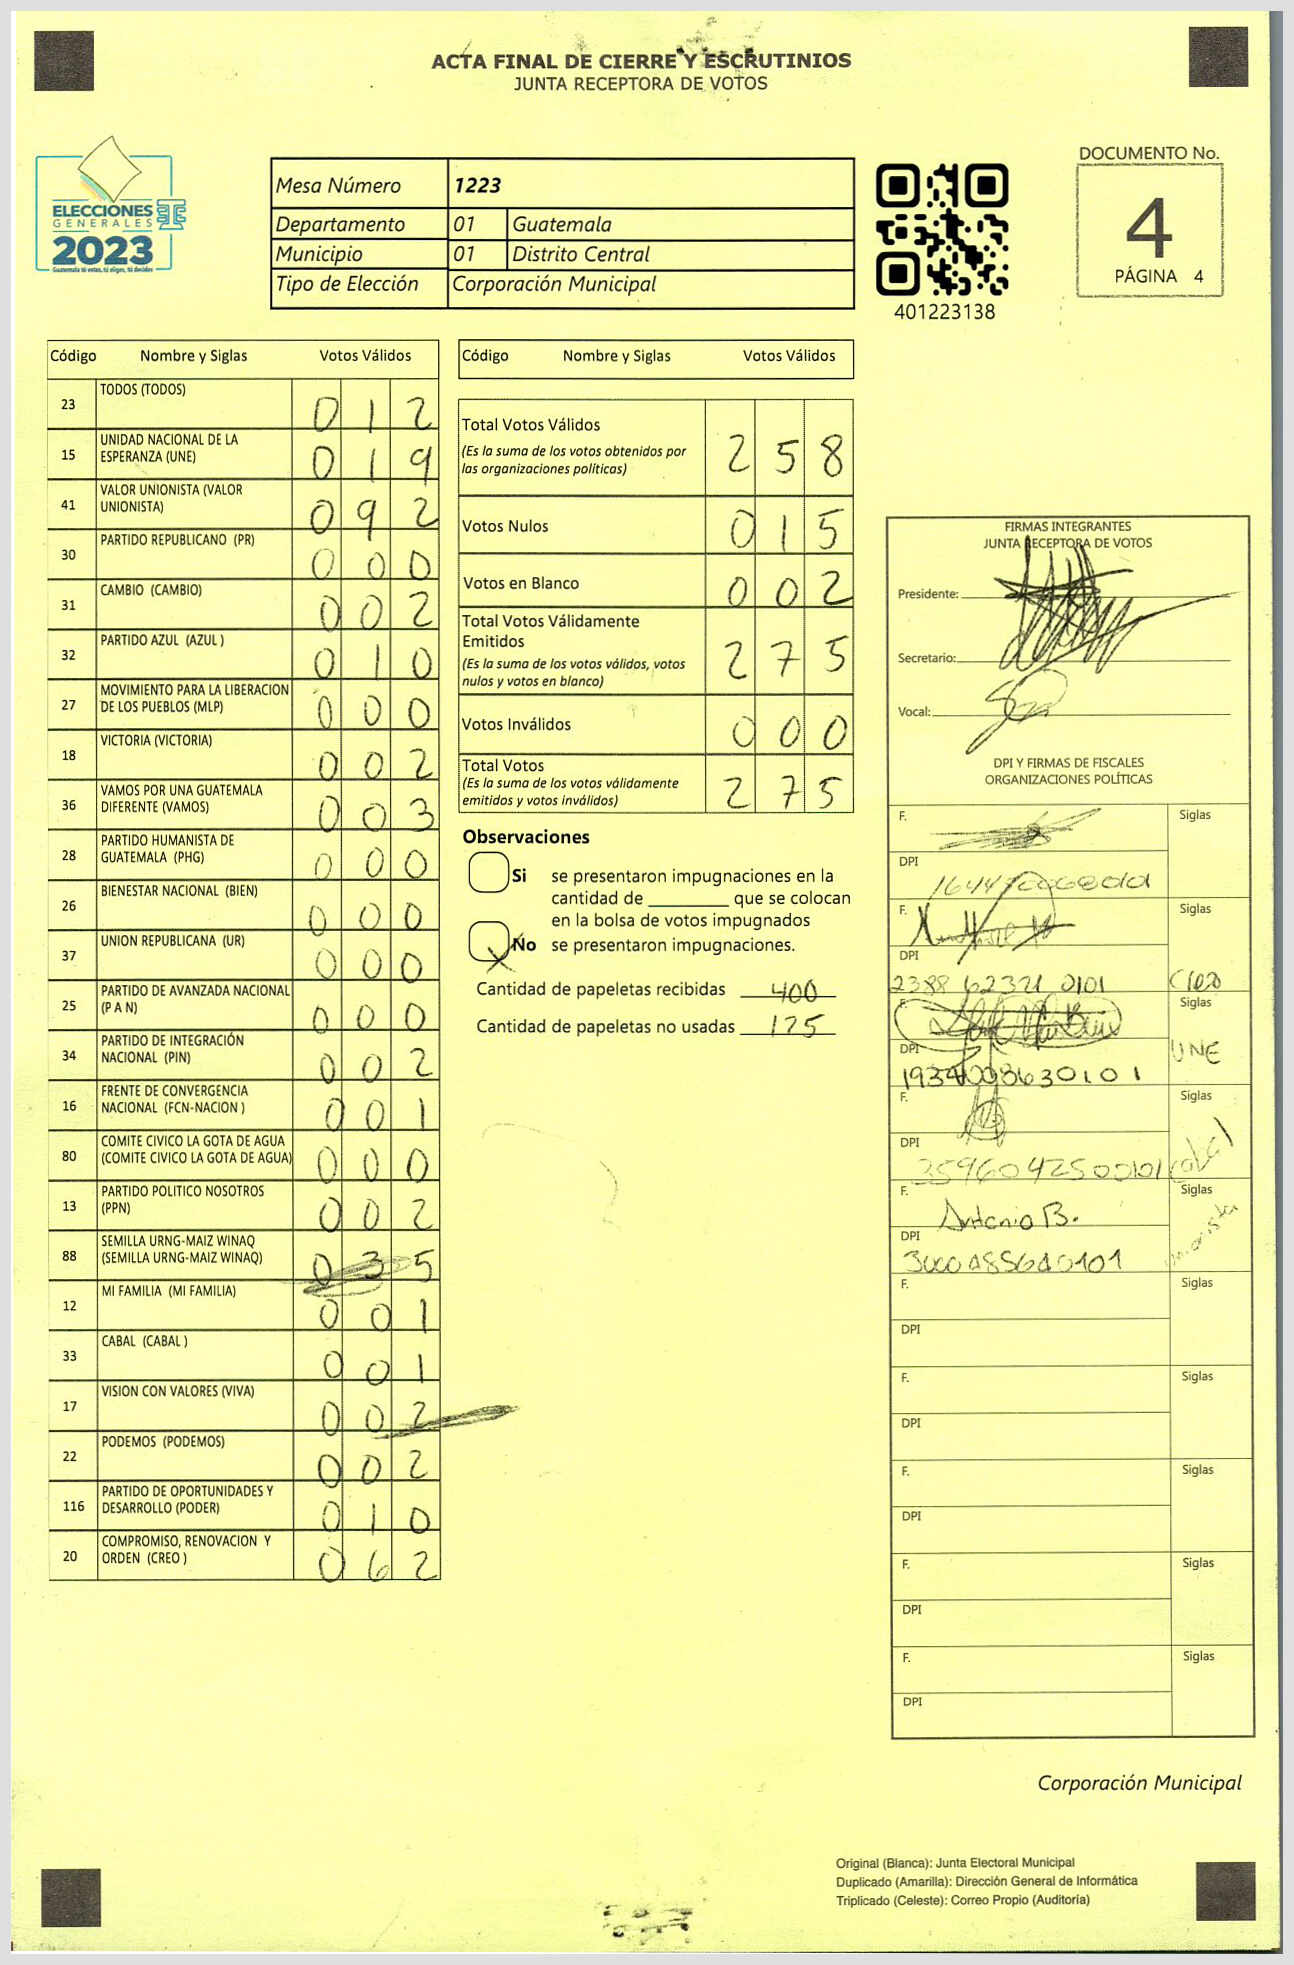 ACTA FINAL DE CIERRE Y ESCRUTINIOS
JUNTA RECEPTORA DE VOTOS
ELECCIONES
GENERALES
2023
Guatemala tú votas, tú eliges, tú decides
Mesa Número 1223
Departamento 01 Guatemala
Municipio 01 Distrito Central
Tipo de Elección Corporación Municipal
401223138
DOCUMENTO No.
4
PÁGINA 4
Código Nombre y Siglas Votos Válidos
23 TODOS (TODOS) 0 1 2
15 UNIDAD NACIONAL DE LA
ESPERANZA (UNE) 0 1 9
41 VALOR UNIONISTA (VALOR
UNIONISTA) 0 9 2
30 PARTIDO REPUBLICANO (PR) 0 0 0
31 CAMBIO (CAMBIO) 0 0 2
32 PARTIDO AZUL (AZUL ) 0 1 0
27 MOVIMIENTO PARA LA LIBERACION
DE LOS PUEBLOS (MLP) 0 0 0
18 VICTORIA (VICTORIA) 0 0 2
36 VAMOS POR UNA GUATEMALA
DIFERENTE (VAMOS) 0 0 3
28 PARTIDO HUMANISTA DE
GUATEMALA (PHG) 0 0 0
26 BIENESTAR NACIONAL (BIEN) 0 0 0
37 UNION REPUBLICANA (UR) 0 0 0
25 PARTIDO DE AVANZADA NACIONAL
(P A N) 0 0 0
34 PARTIDO DE INTEGRACIÓN
NACIONAL (PIN) 0 0 2
16 FRENTE DE CONVERGENCIA
NACIONAL (FCN-NACION ) 0 0 1
80 COMITE CIVICO LA GOTA DE AGUA
(COMITE CIVICO LA GOTA DE AGUA) 0 0 0
13 PARTIDO POLITICO NOSOTROS
(PPN) 0 0 2
88 SEMILLA URNG-MAIZ WINAQ
(SEMILLA URNG-MAIZ WINAQ) 0 3 5
12 MI FAMILIA (MI FAMILIA) 0 0 1
33 CABAL (CABAL ) 0 0 1
17 VISION CON VALORES (VIVA) 0 0 2
22 PODEMOS (PODEMOS) 0 0 2
116 PARTIDO DE OPORTUNIDADES Y
DESARROLLO (PODER) 0 1 0
20 COMPROMISO, RENOVACION Y
ORDEN (CREO ) 0 6 2
Código Nombre y Siglas Votos Válidos
Total Votos Válidos
(Es la suma de los votos obtenidos por
las organizaciones políticas) 2 5 8
Votos Nulos 0 1 5
Votos en Blanco 0 0 2
Total Votos Válidamente
Emitidos
(Es la suma de los votos válidos, votos
nulos y votos en blanco) 2 7 5
Votos Inválidos 0 0 0
Total Votos
(Es la suma de los votos válidamente
emitidos y votos inválidos) 2 7 5
Observaciones
Si se presentaron impugnaciones en la
cantidad de ________ que se colocan
en la bolsa de votos impugnados
No se presentaron impugnaciones.
Cantidad de papeletas recibidas 400
Cantidad de papeletas no usadas 125
FIRMAS INTEGRANTES
JUNTA RECEPTORA DE VOTOS
Presidente:
Secretario:
Vocal:
DPI Y FIRMAS DE FISCALES
ORGANIZACIONES POLÍTICAS
F. Siglas
DPI
F. Siglas
DPI
2388 62321 0101
F. Siglas
DPI UNE
1934008630101
F. Siglas
DPI
2596042500101 Cabal
F. Antonio B. Siglas
DPI
F. Siglas
DPI
F. Siglas
DPI
F. Siglas
DPI
F. Siglas
DPI
F. Siglas
DPI
Corporación Municipal
Original (Blanca): Junta Electoral Municipal
Duplicado (Amarilla): Dirección General de Informática
Triplicado (Celeste): Correo Propio (Auditoría)